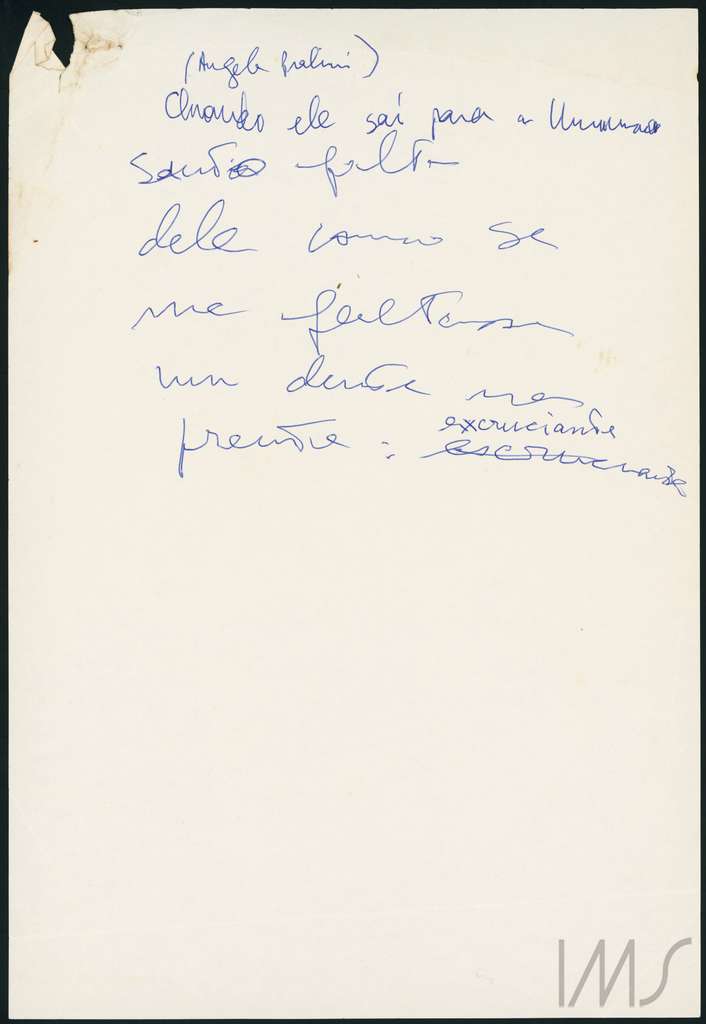 (Angela Pralini)
Quando ele sai para a
sinto falta
dele como se
me faltasse
um dente na
frente : excruciante
escruciante
IMS